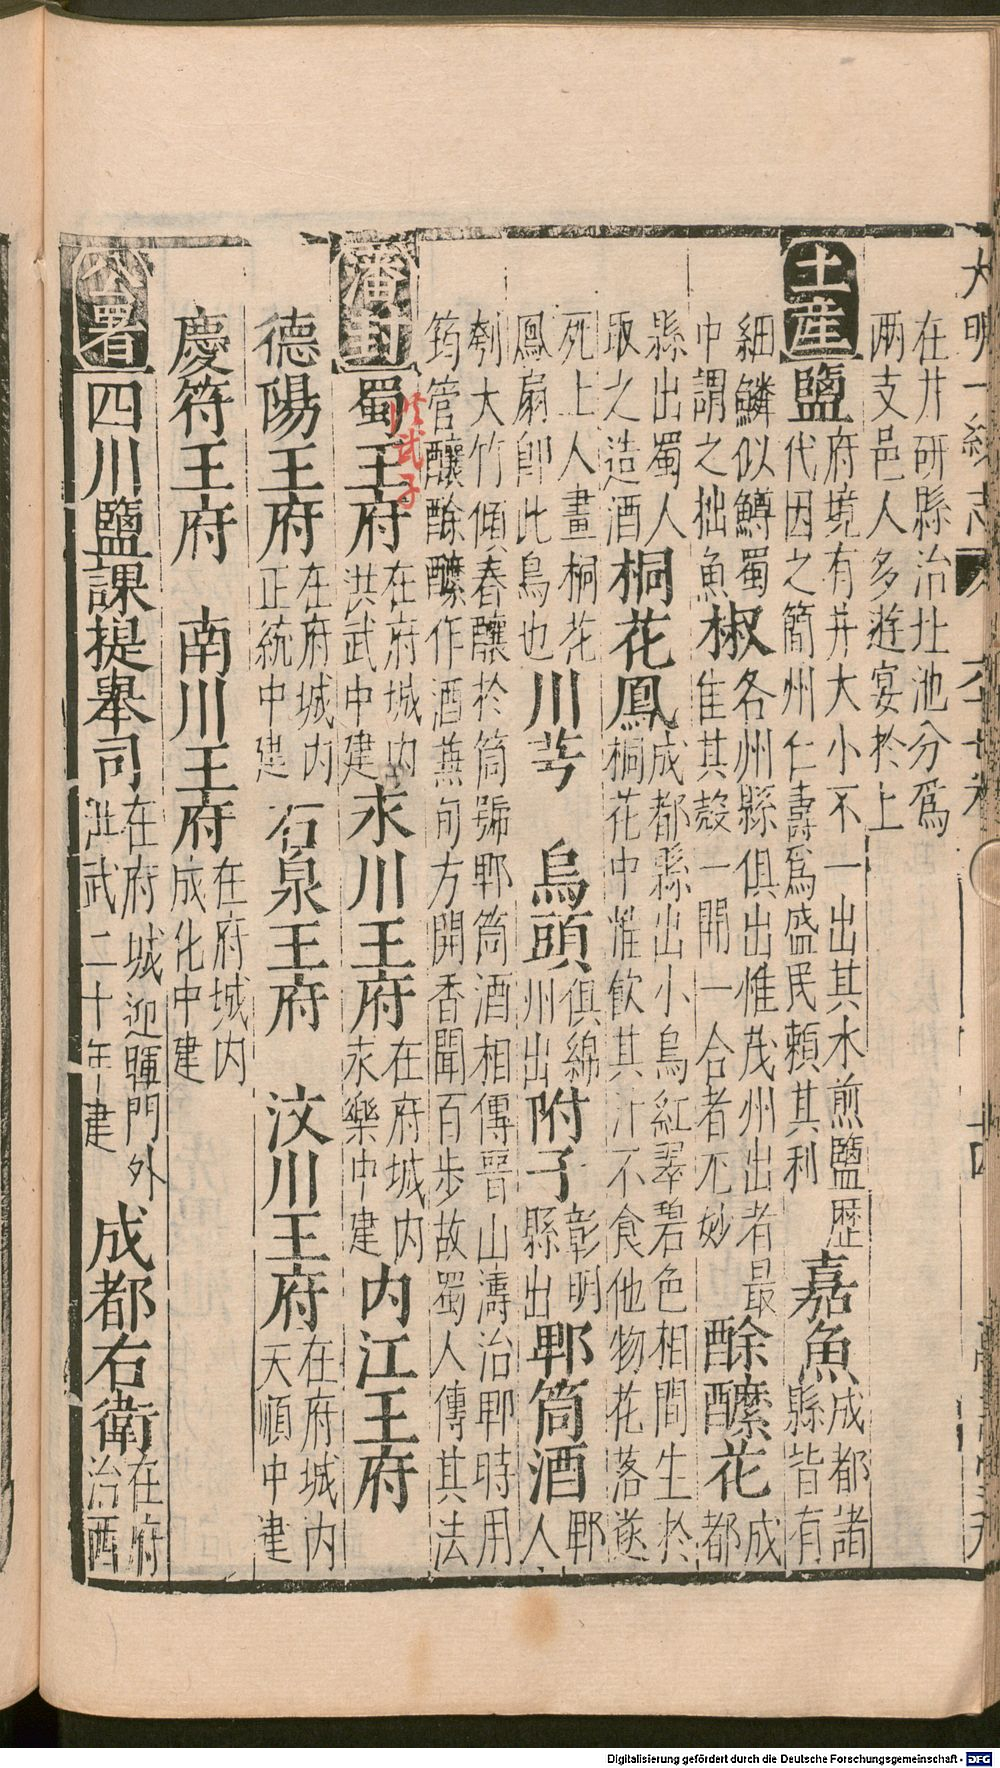 大明一統志 六十七卷 十四
在井研縣治北池分爲兩支邑人多遊宴於上
土産 鹽 府境有井大小不一出其水煎鹽歷代因之簡州仁壽爲盛民賴其利 嘉魚 成都諸縣皆有
細鱗似鱒蜀中謂之拙魚 椒 各州縣俱出惟茂州出者最佳其殼一開一合者尤妙 酴醿花 成都
縣出蜀人取之造酒 桐花鳳 成都縣出小鳥紅翠碧色相間生於桐花中惟飲其汁不食他物花落遂
死上人畫桐花鳳扇卽此鳥也 川芎 烏頭 俱綿州出 附子 彰明縣出 郫筒酒 郫人
刳大竹傾春釀於筒號郫筒酒相傳晉山濤治郫時用筠管釀酴醿作酒蕪旬方開香聞百步故蜀人傳其法
藩封 蜀王府 在府城内洪武中建 永川王府 在府城内永樂中建 内江王府
武子
德陽王府 在府城内正統中建 石泉王府 汶川王府 在府城内天順中建
慶符王府 南川王府 在府城内成化中建
公署 四川鹽課提舉司 在府城迎暉門外洪武二十年建 成都右衛 在府治西
Digitalisierung gefördert durch die Deutsche Forschungsgemeinschaft - DFG